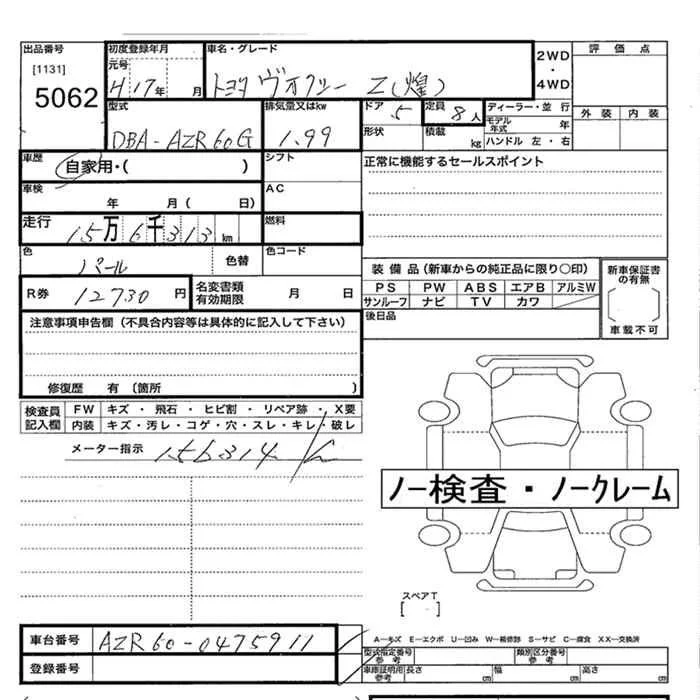 出品番号 初度登録年月 車名・グレード 2WD・4WD 評価点
[1131] 元号
5062 H17年 月 トヨタ ヴォクシー Z(煌)
型式 排気量又はkw ドア 5 定員 8人 ディーラー・並行 外装 内装
DBA-AZR60G 1.99 形状 積載 kg モデル年式 年
ハンドル 左・右
車歴 自家用・( ) シフト 正常に機能するセールスポイント
車検 年 月 ( 日) AC
走行 15万6千313km 燃料
色 パール 色替 色コード 装備品(新車からの純正品に限り○印) 新車保証書の有無
R券 12730円 名変書類有効期限 月 日 PS PW ABS エアB アルミW
サンルーフ ナビ TV カワ
注意事項申告欄(不具合内容等は具体的に記入して下さい) 後日品 車載不可
修復歴 有(箇所 )
検査員記入欄 FW キズ・飛石・ヒビ割・リペア跡・X要
内装 キズ・汚レ・コゲ・穴・スレ・キレ・破レ
メーター指示 156314
ノー検査・ノークレーム
スペアT
[ ]
車台番号 AZR60-0475911 A-キズ E-エクボ U-凹み W-補修跡 S-サビ C-腐食 XX-交換済
登録番号 型式指定番号 参考 類別区分番号 参考
車庫証明用 参考 長さ cm 幅 cm 高さ cm